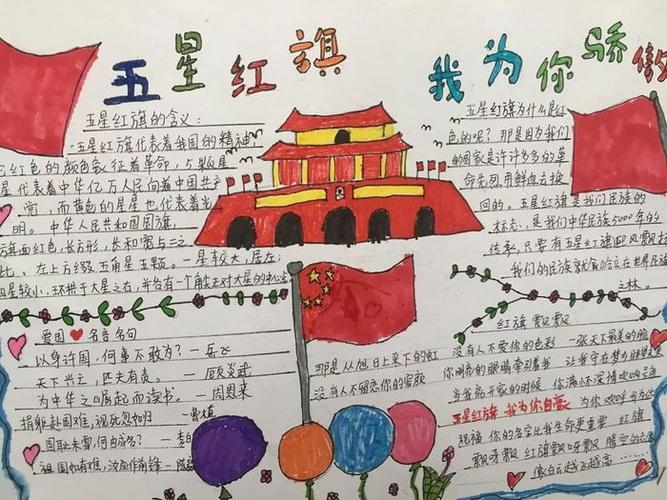 五星红旗
我为你骄傲
五星红旗的含义：
"五星红旗代表着我国的精神
红色的颜色象征着革命，5颗星
星代表着中华亿万人民向着中国共产
党，而黄色的星星也代表着光
明。中华人民共和国国旗，
旗面红色，长方形，长和宽与三之
比、左上方缀五角星五颗。一星较大，居左；
四星较小，环拱于大星之右，并各有一个角尖正对大星的中心
爱国名言名句
以身许国，何事不敢为？—岳飞
天下兴亡，匹夫有责。—顾炎武
为中华之崛起而读书。—周恩来
捐躯赴国难，视死忽如归 —曹植
国耻未雪，何由成名？—李白
祖国如有难，汝应作前锋—陈毅
五星红旗为什么是红
色的呢？那是因为我们
的国家是许许多多的革
命先烈用鲜血去换
回的。五星红旗是我们民族的
标志，是我们中华民族5000年的
传承，只要有五星红旗迎风飘扬
我们的民族就会屹立在世界民族
之林。
红旗飘飘
那是从旭日上采下的红
没有人不爱你的色彩
一张天下最美的脸
没有人不留恋你的容颜
你明亮的眼睛牵引着我
让我守在梦乡眺望
当我离开家的时候
你满怀深情吹响号
五星红旗 我为你自豪
为你欢呼
祝福 你的名字比我生命更重要
红旗
飘呀飘 红旗飘呀飘
腾空的
像白云越飞越高……